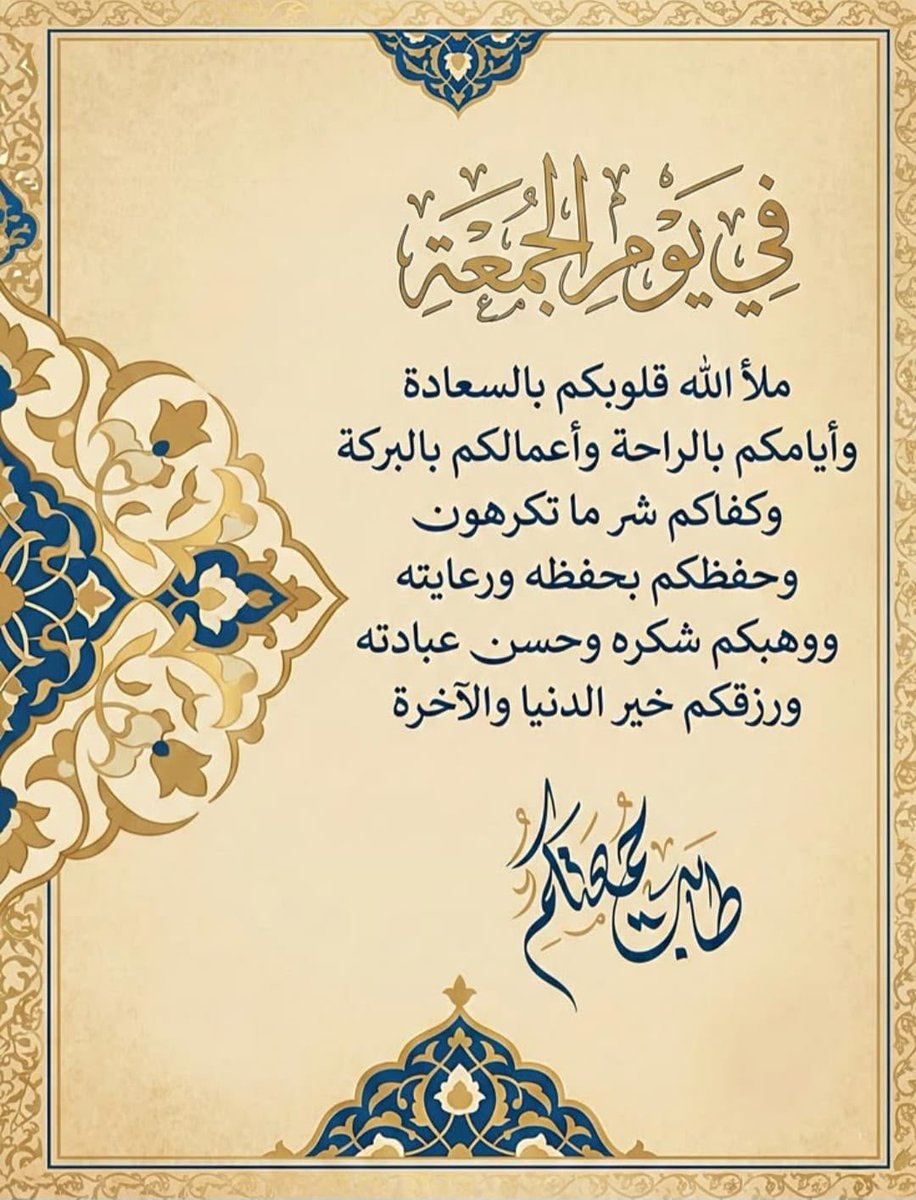 فِي يَوْمِ الْجُمُعَةِ
ملأ الله قلوبكم بالسعادة
وأيامكم بالراحة وأعمالكم بالبركة
وكفاكم شر ما تكرهون
وحفظكم بحفظه ورعايته
ووهبكم شكره وحسن عبادته
ورزقكم خير الدنيا والآخرة
طابت جمعتكم